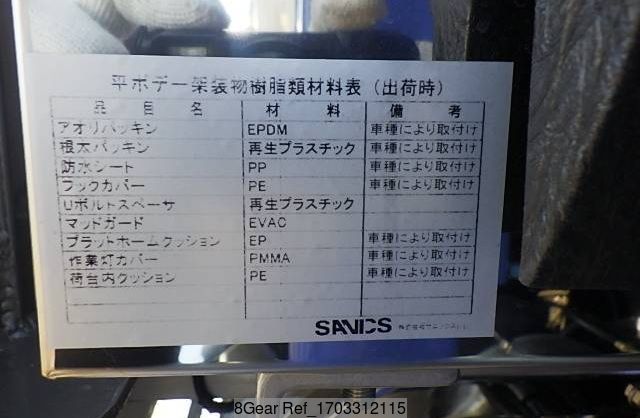 平ボデー架装物樹脂類材料表（出荷時）
品目名 材料 備考
アオリパッキン EPDM 車種により取付け
根太パッキン 再生プラスチック 車種により取付け
防水シート PP 車種により取付け
フックカバー PE 車種により取付け
Uボルトスペーサ 再生プラスチック
マッドガード EVAC
プラットホームクッション EP 車種により取付け
作業灯カバー PMMA 車種により取付け
荷台内クッション PE 車種により取付け
SANICS
8Gear Ref_1703312115